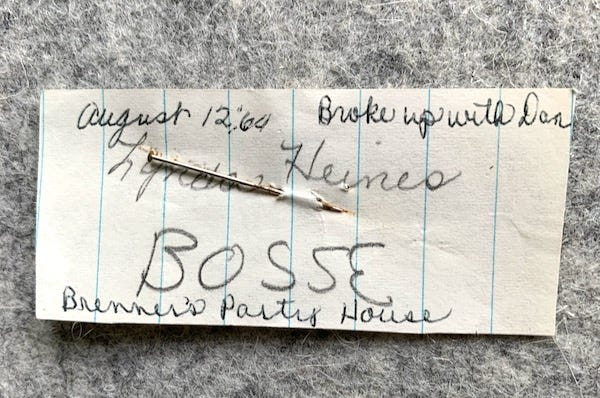 August 12, '64 Broke up with Dan
Heines
BOSSE
Brenner's Party House